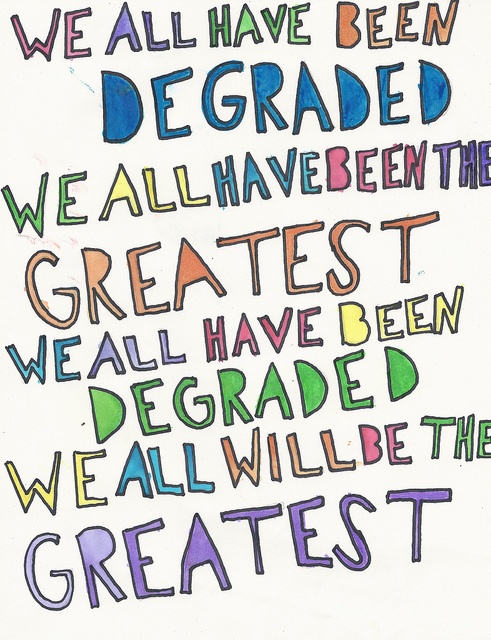 WE ALL HAVE BEEN
DEGRADED
WE ALL HAVE BEEN THE
GREATEST
WE ALL HAVE BEEN
DEGRADED
WE ALL WILL BE THE
GREATEST